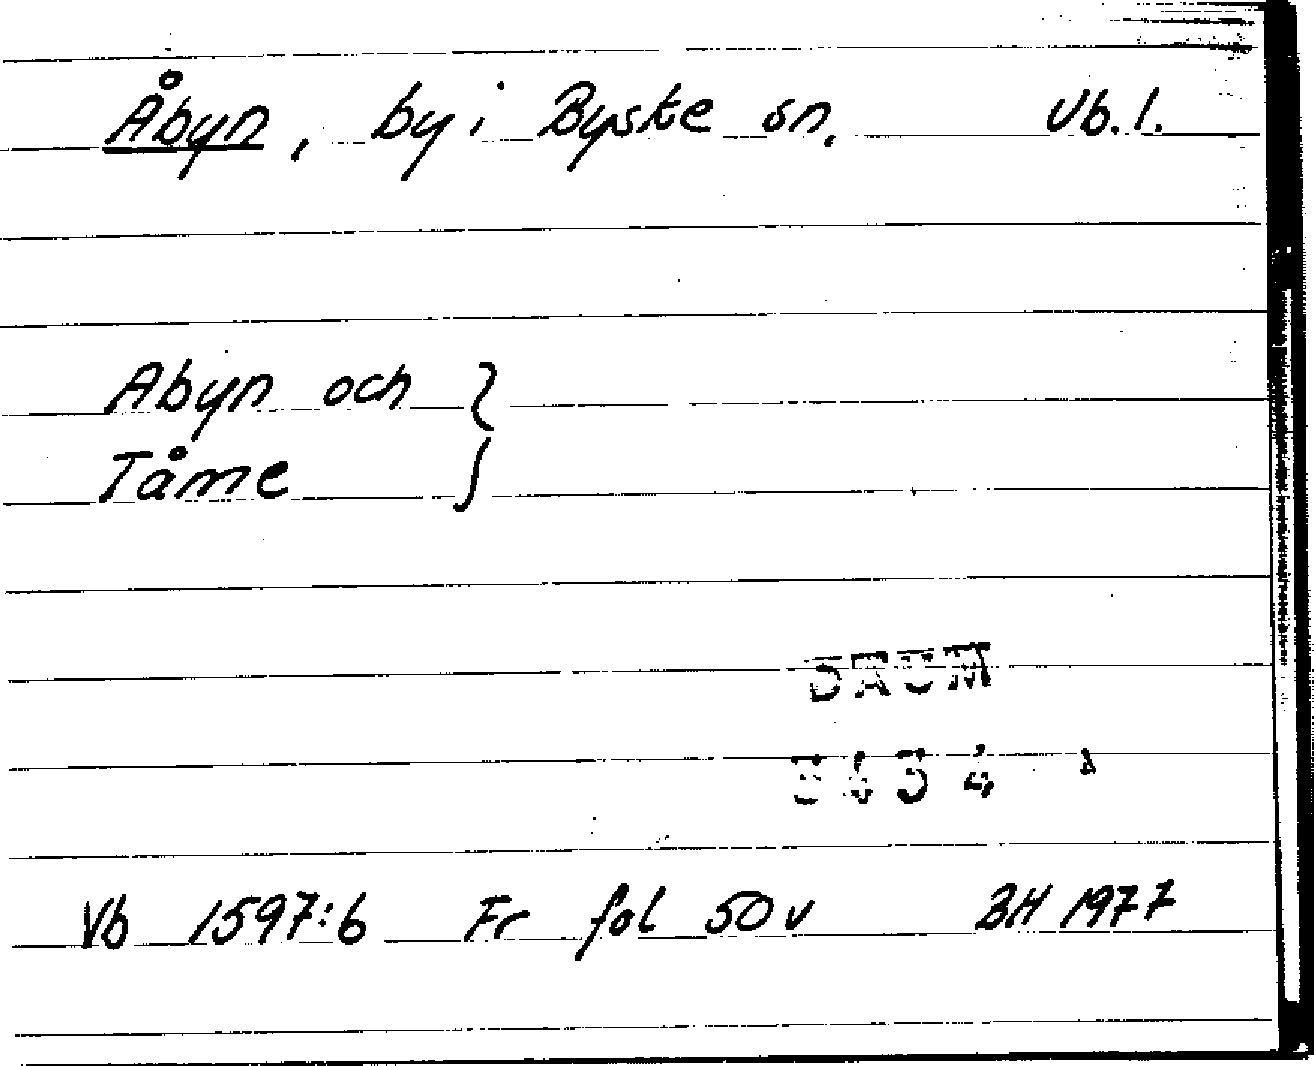 Åbyn, by i Byske sn. Vb. l.
Abyn och }
Tåme
DAUM
Vb 1597:6 Fr fol 50 v BH 1977